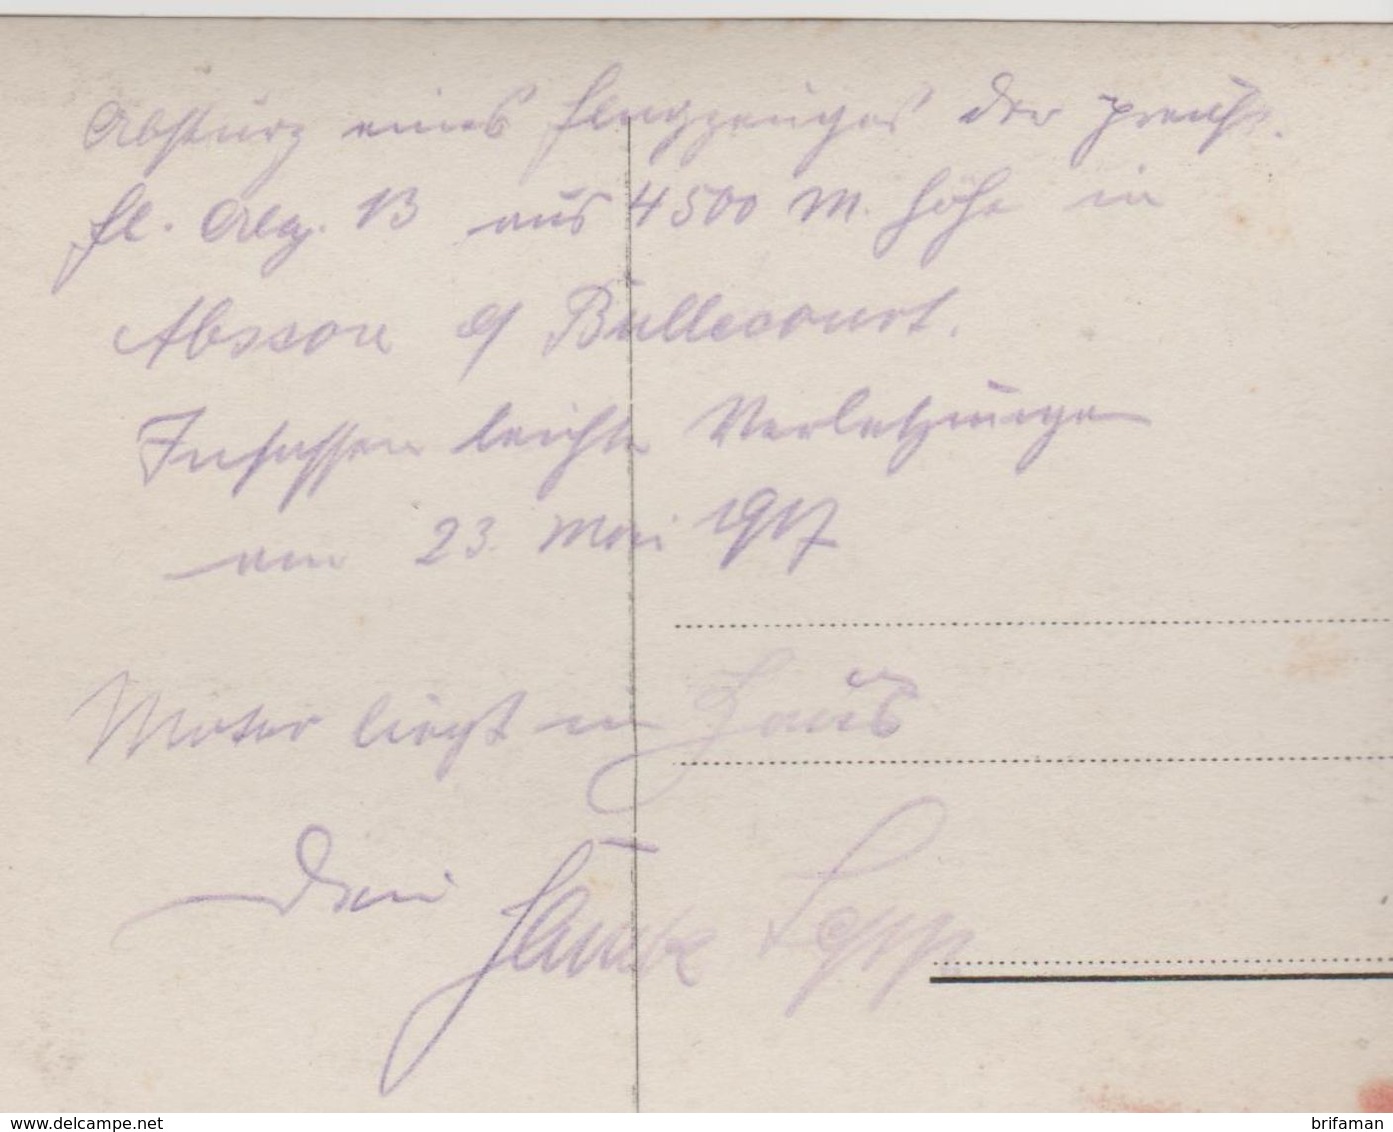 Absturz eines Flugzeuges der preuß.
Fl. Abg. 13 aus 4500 m. Höhe in
Abscon b/ Bullecourt.
Insassen leichte Verletzungen
am 23. Mai 1917
Motor liegt im Haus
Dein Sepp
www.delcampe.net
brifaman